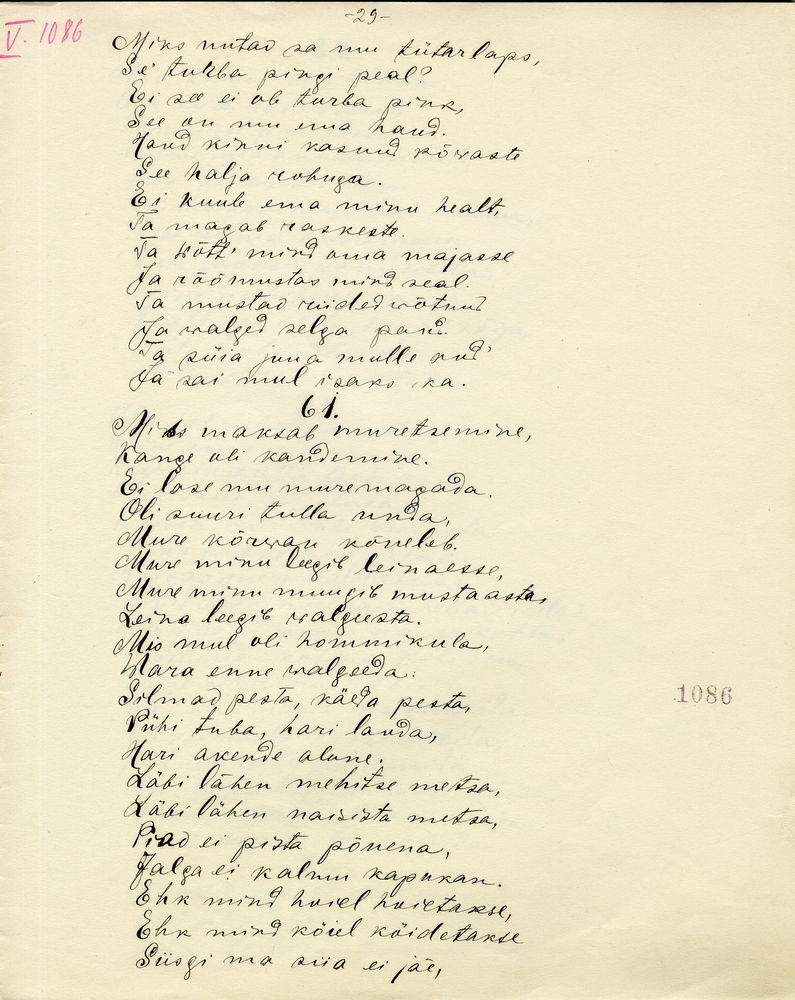 -29-
V. 1086
Miks nutad sa mu tütarlaps,
Se turba pingi peal?
Ei see ei ole turba pink,
See on mu ema haud.
Haud kinni kasnud kõwaste
See halja rohuga.
Ei kuule ema minu healt,
Ta magab raskeste.
Ta wõtt' mind oma majasse
Ja rõõmustas mind seal.
Ta mustad riided wõtnud
Ja walged selga pand.
Ta süia jua mulle and'
Ja sai mul isaks ka.
61.
Miks maksab muretsemine,
Kange oli kandemine.
Ei lase mu mure magada.
Oli suuri tulla unda,
Mure kõrwan kõneleb.
Mure minu leegib leinaesse,
Mure minu muugib mustaasta,
Leina leegib walgusta.
Mis mul oli hommikula,
Wara enne walgeeda:
Silmad pesta, käeda pesta,
Pühi tuba, hari lauda,
Hari akende alune.
Läbi lähen mehitse metsa,
Läbi lähen naisista metsa,
Piad ei pista põuena,
Jalga ei kalmu kapukan.
Ehk mind hoiel hoietakse,
Ehk mind köiel köidetakse
Siisgi ma siia ei jäe,
1086